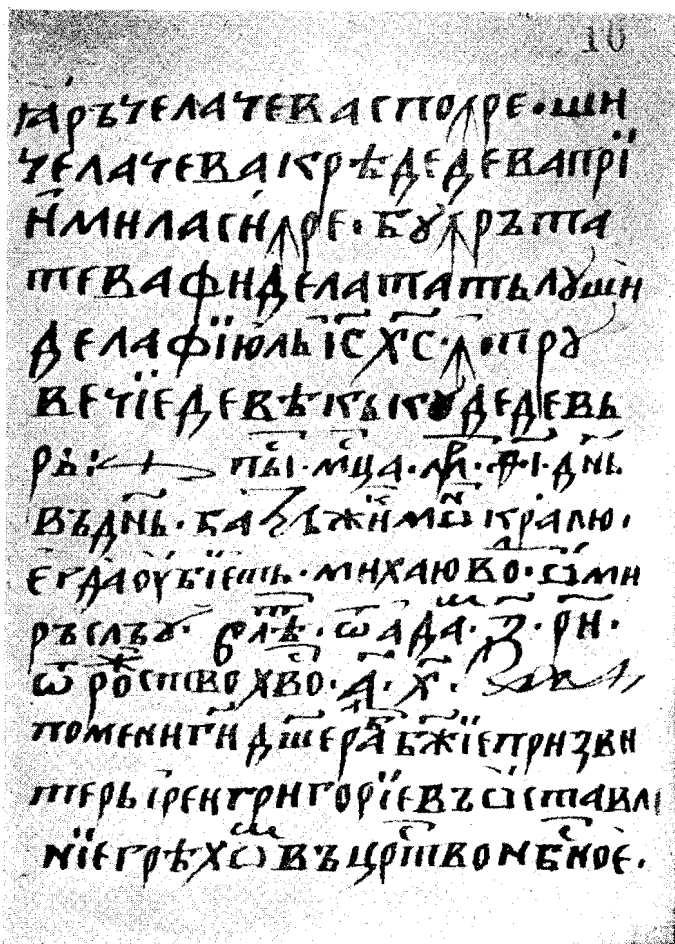 ꙗръчелачеваспоꙟре·ши
челачевакрѣдедевапрї
имиласиꙟре·бꙋкръта
тевафиделататьлꙋши
делафїюль іс҃ хс҃·ꙟ·прꙋ
вечїедевѣкькꙋдедевь
рь: пс҃і·мс҃ца· днь҃
въднь҃· кралю·
егдаоубїешь·михаюво· ми
ръслъꙋ· лѣ҃т·ѿада҃м·з҃·рн҃·
ѿрож҃ство хв҃о·а҃·х҃·
помени г҃и дш҃ераба б҃жїепризви
терь їреигригорїевъѡставлі
нїегрѣхѡм въцрт҃вонбс҃ное.